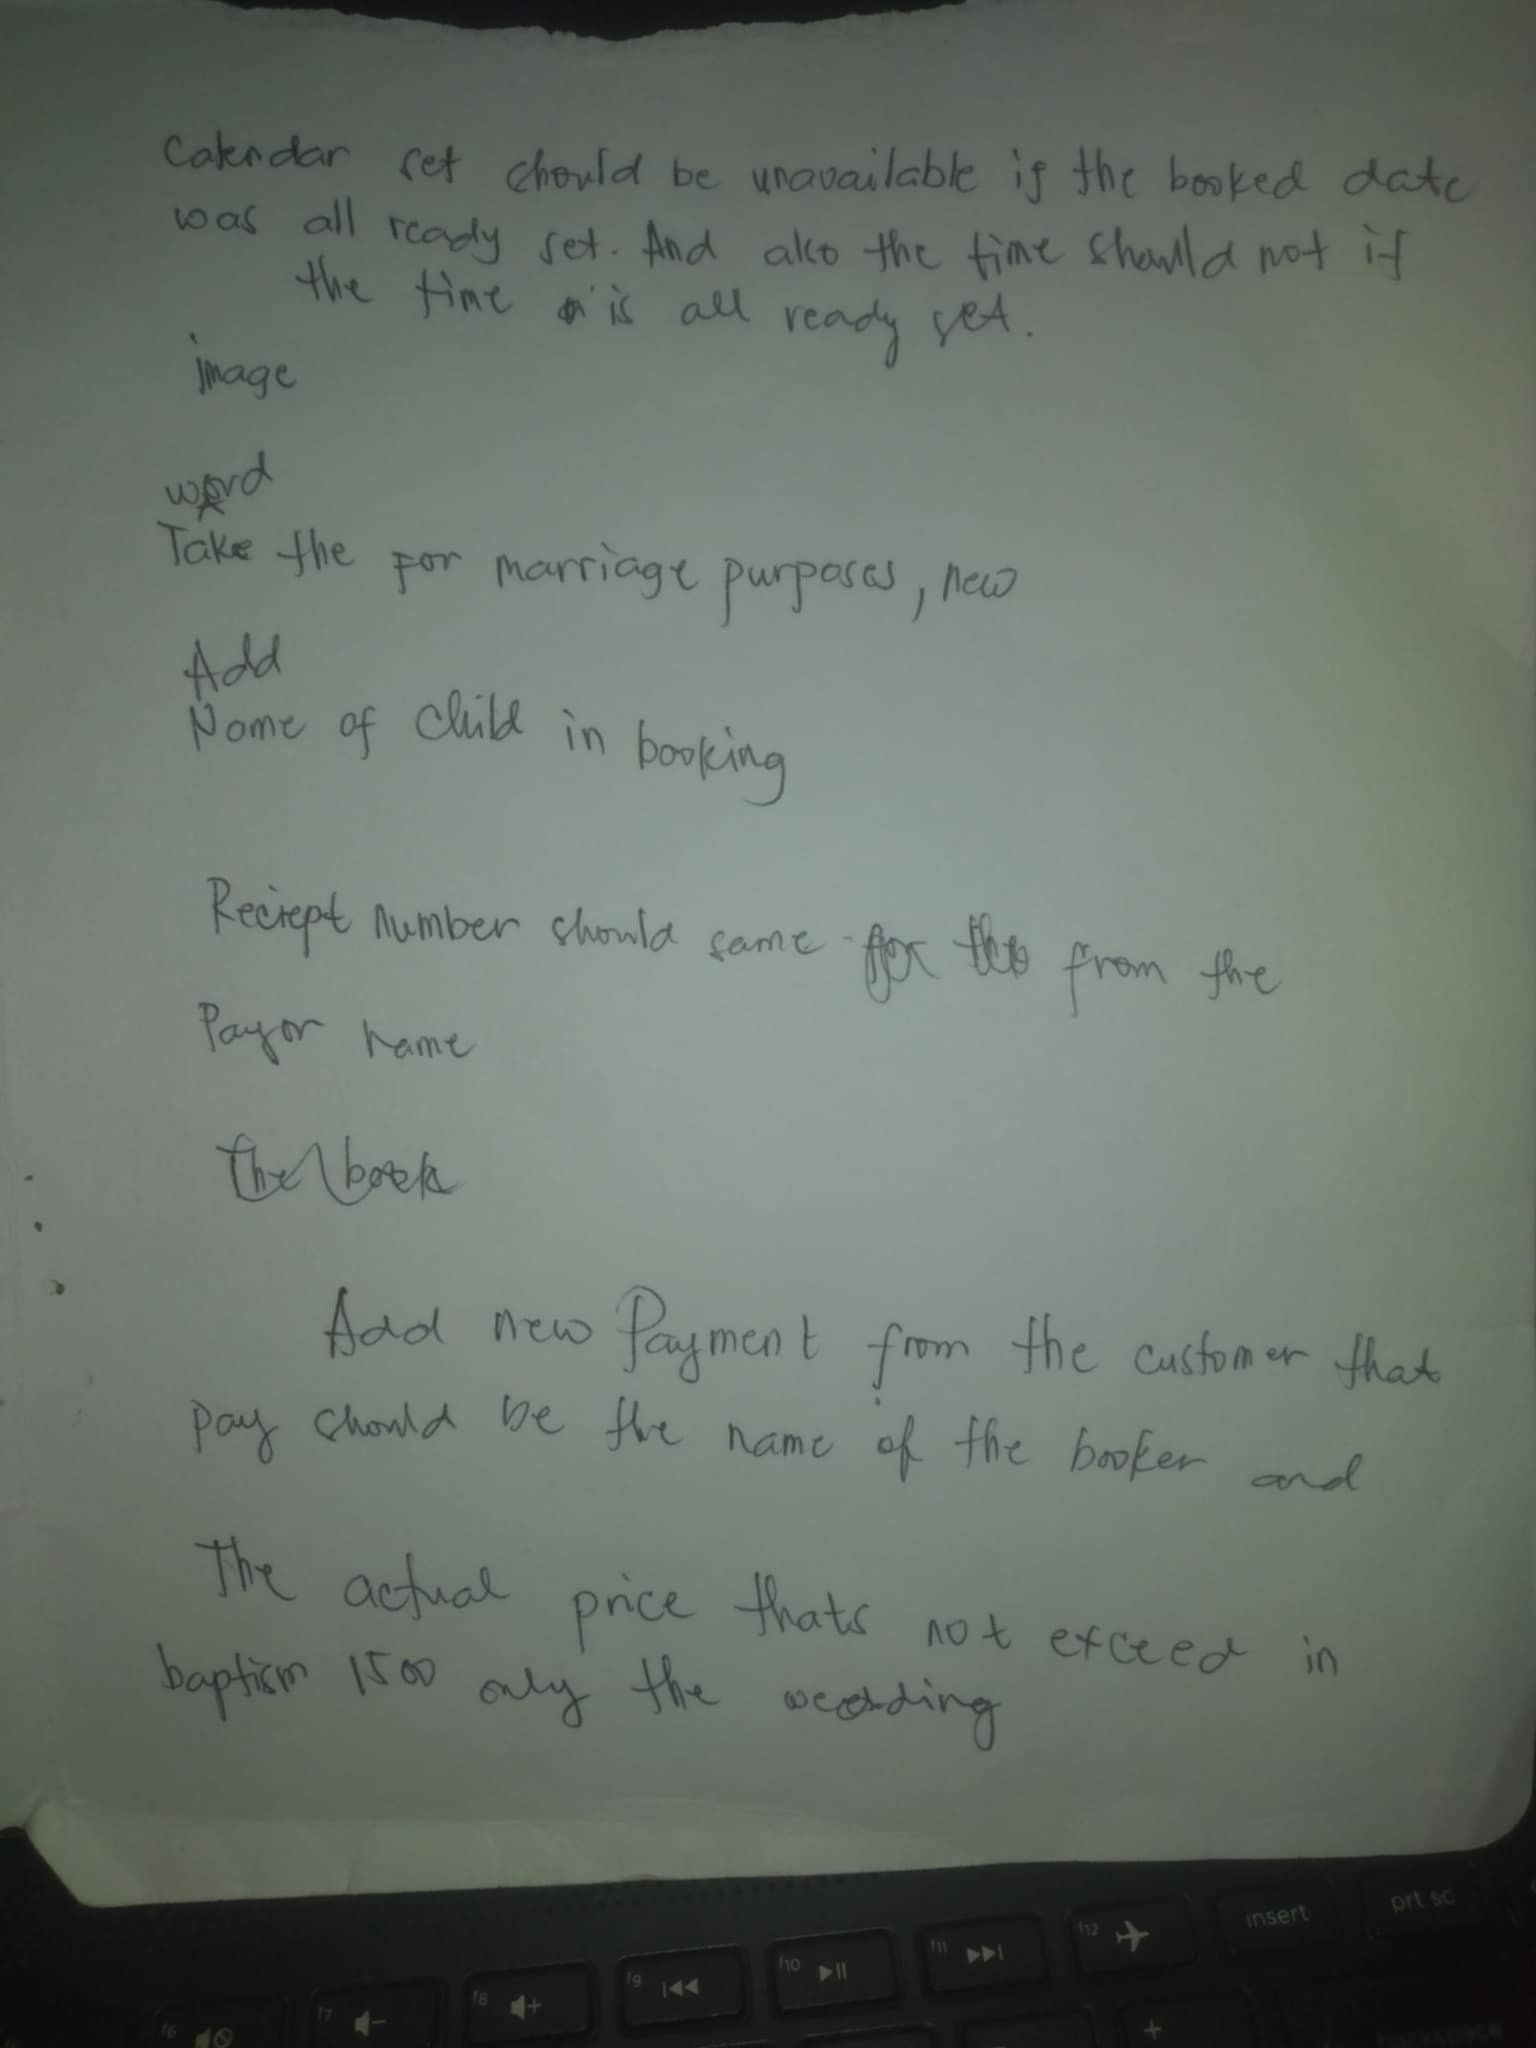 Calendar set should be unavailable if the booked date
was all ready set. And also the time should not if
the time is all ready set.
image
word
Take the for marriage purposes, new
Add
Name of child in booking
Reciept number should same for the from the
Payor name
The book
Add new Payment from the customer that
pay should be the name of the booker and
The actual price thats not exceed in
baptism 1500 only the wedding
f6
f7
f8
f9
f10
f11
f12
insert
prt sc
+